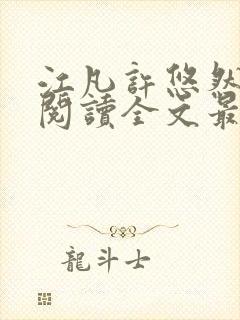 江凡許悠然
閱讀全文最
龍斗士